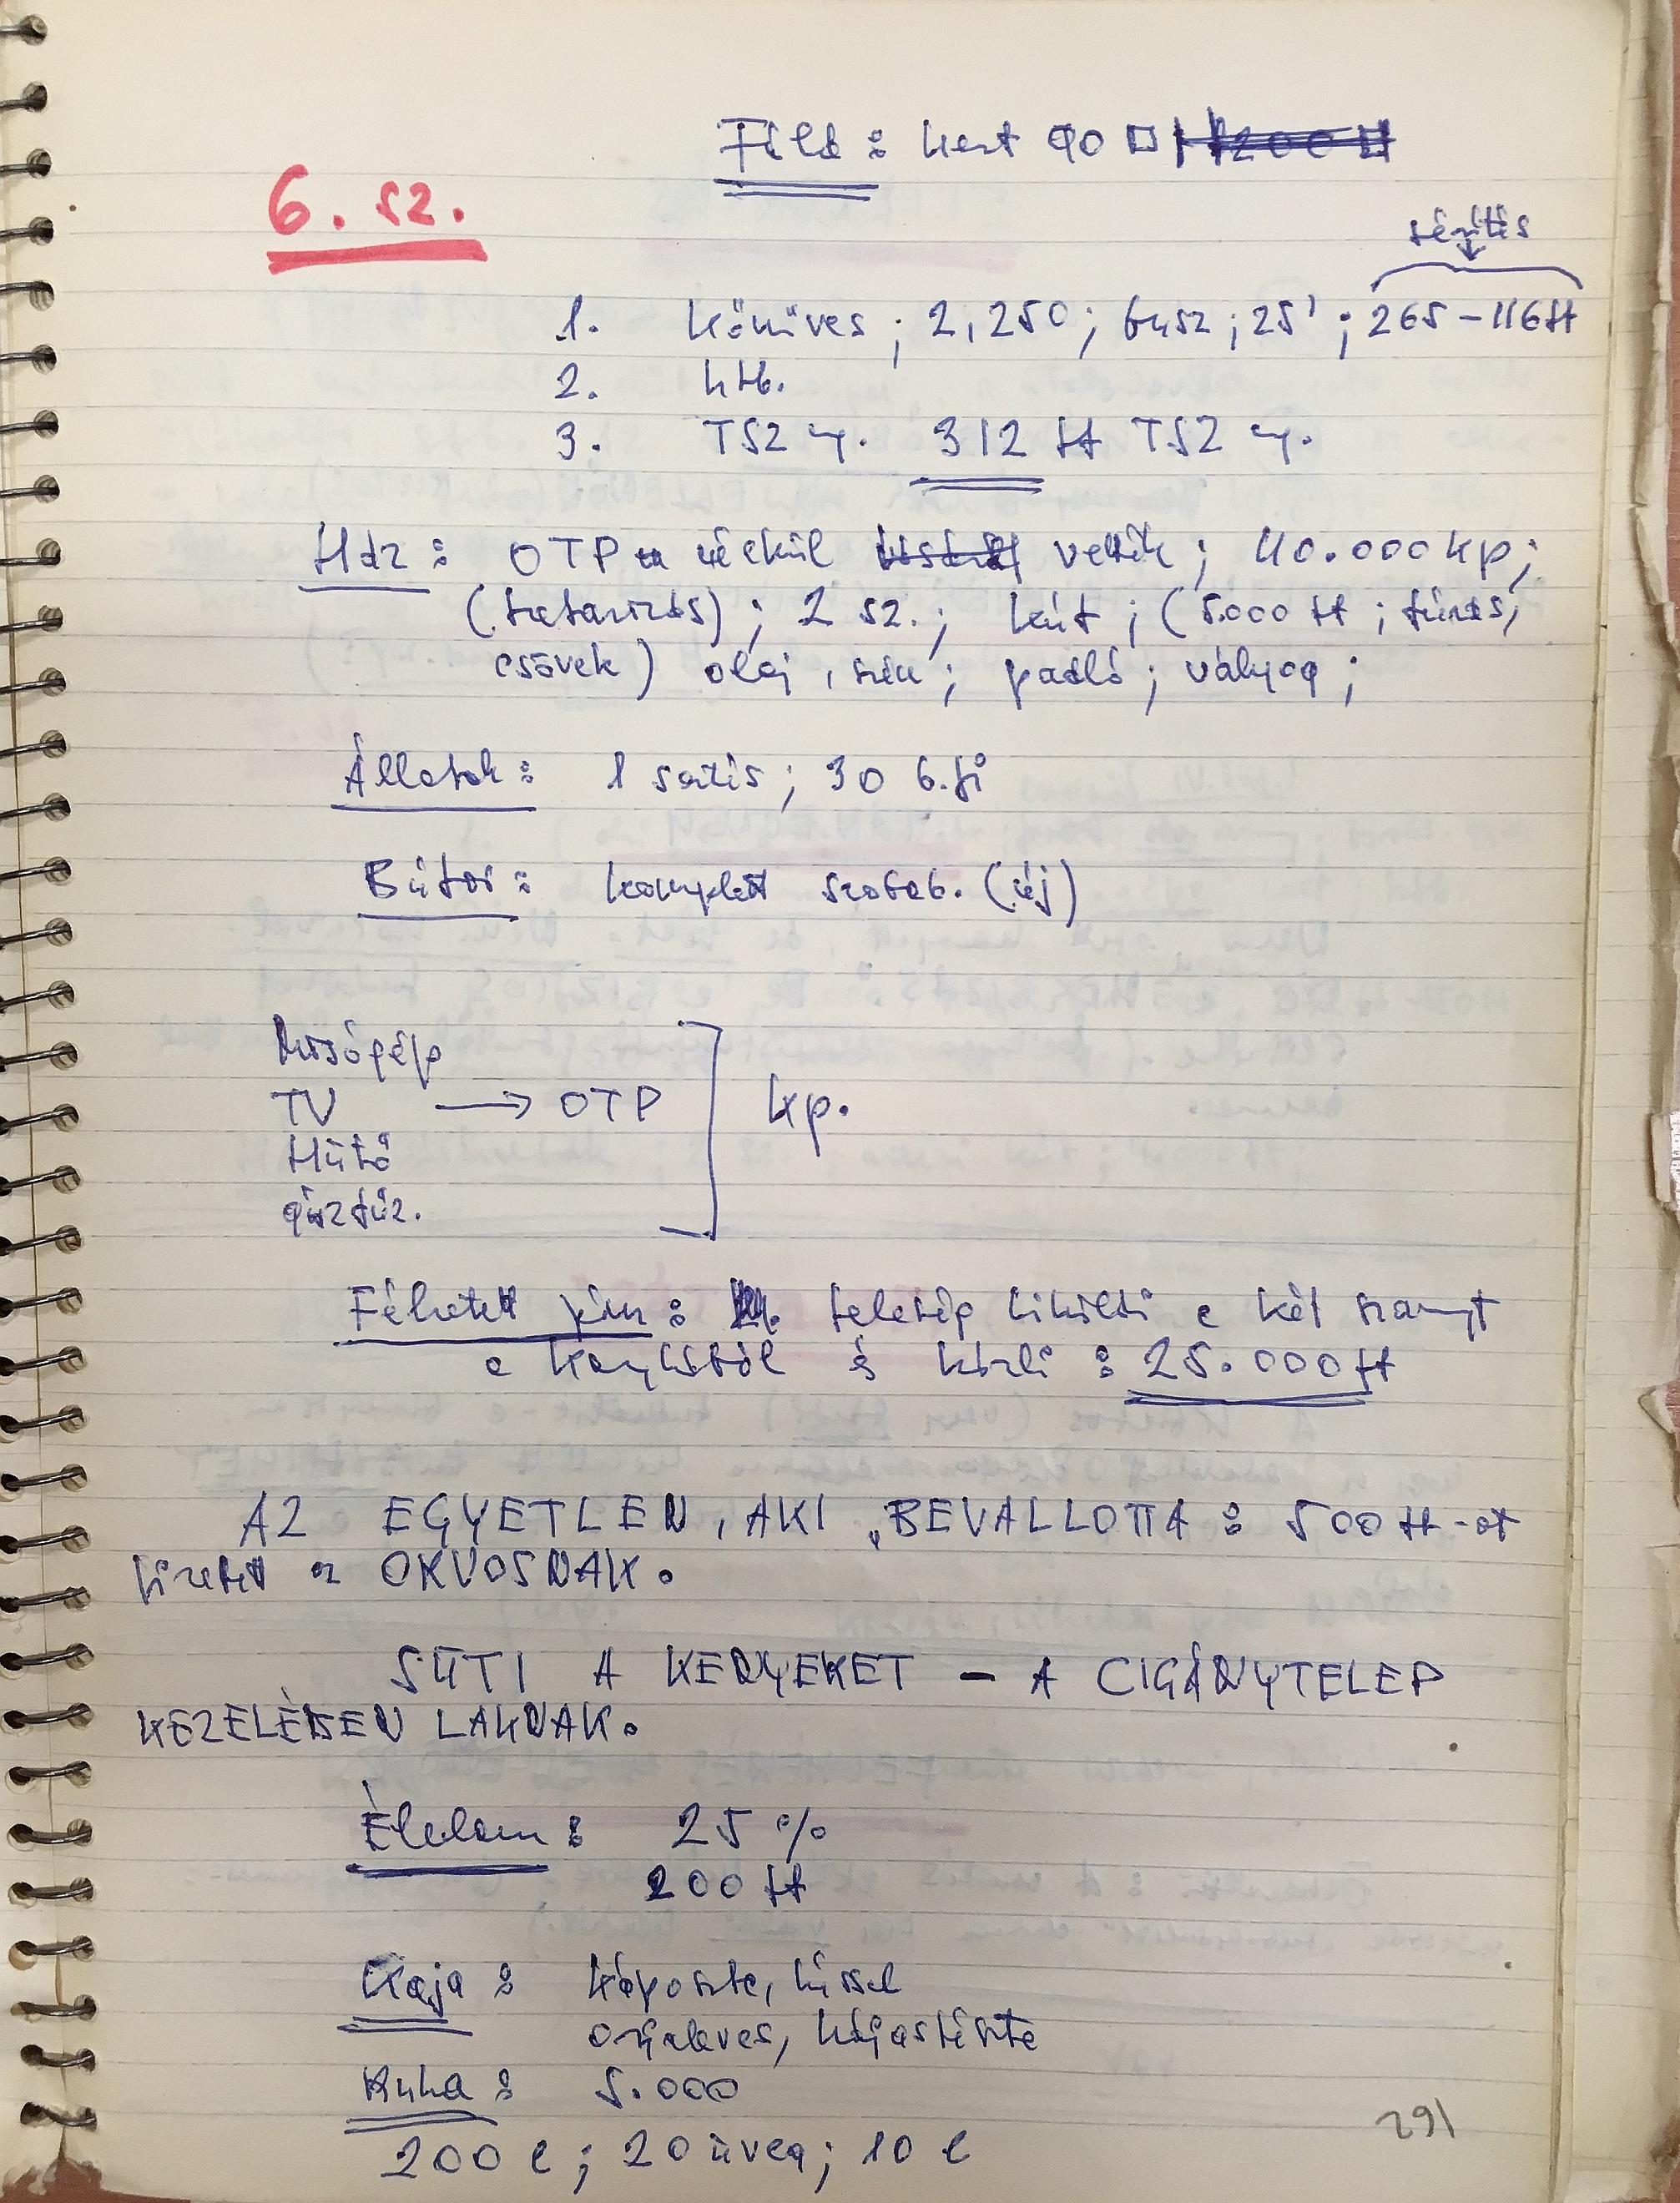 Föld: kert 90 □
6. sz.
sérülés
1. kőműves; 2,250; busz; 25'; 265 – 116 ft
2. htb.
3. TSZ ny. 312 ft TSZ ny.
Ház: OTP nélkül vették; 40.000 kp;
(tatarozás); 2 sz.; kút; (5.000 ft; fúrás,
csövek) olaj, szén; padló; vályog;
Állatok: 1 sertés; 30 b.fi
Bútor: komplett szobab. (új)
Mosógép
TV → OTP
Hűtő
gáztűz.
kp.
Félretett pénz: feleség kiküldi a két
a konyhából és közli: 25.000 ft
AZ EGYETLEN, AKI „BEVALLOTTA: 500 ft-ot
fizetett az ORVOSNAK.
SÜTI A KENYEKET – A CIGÁNYTELEP
KÖZELÉBEN LAKNAK.
Élelem: 25 %
200 ft
Kaja: káposzta, hússal
orjaleves, hájastészta
Ruha: 5.000
200 l; 20 üveg; 10 l
291